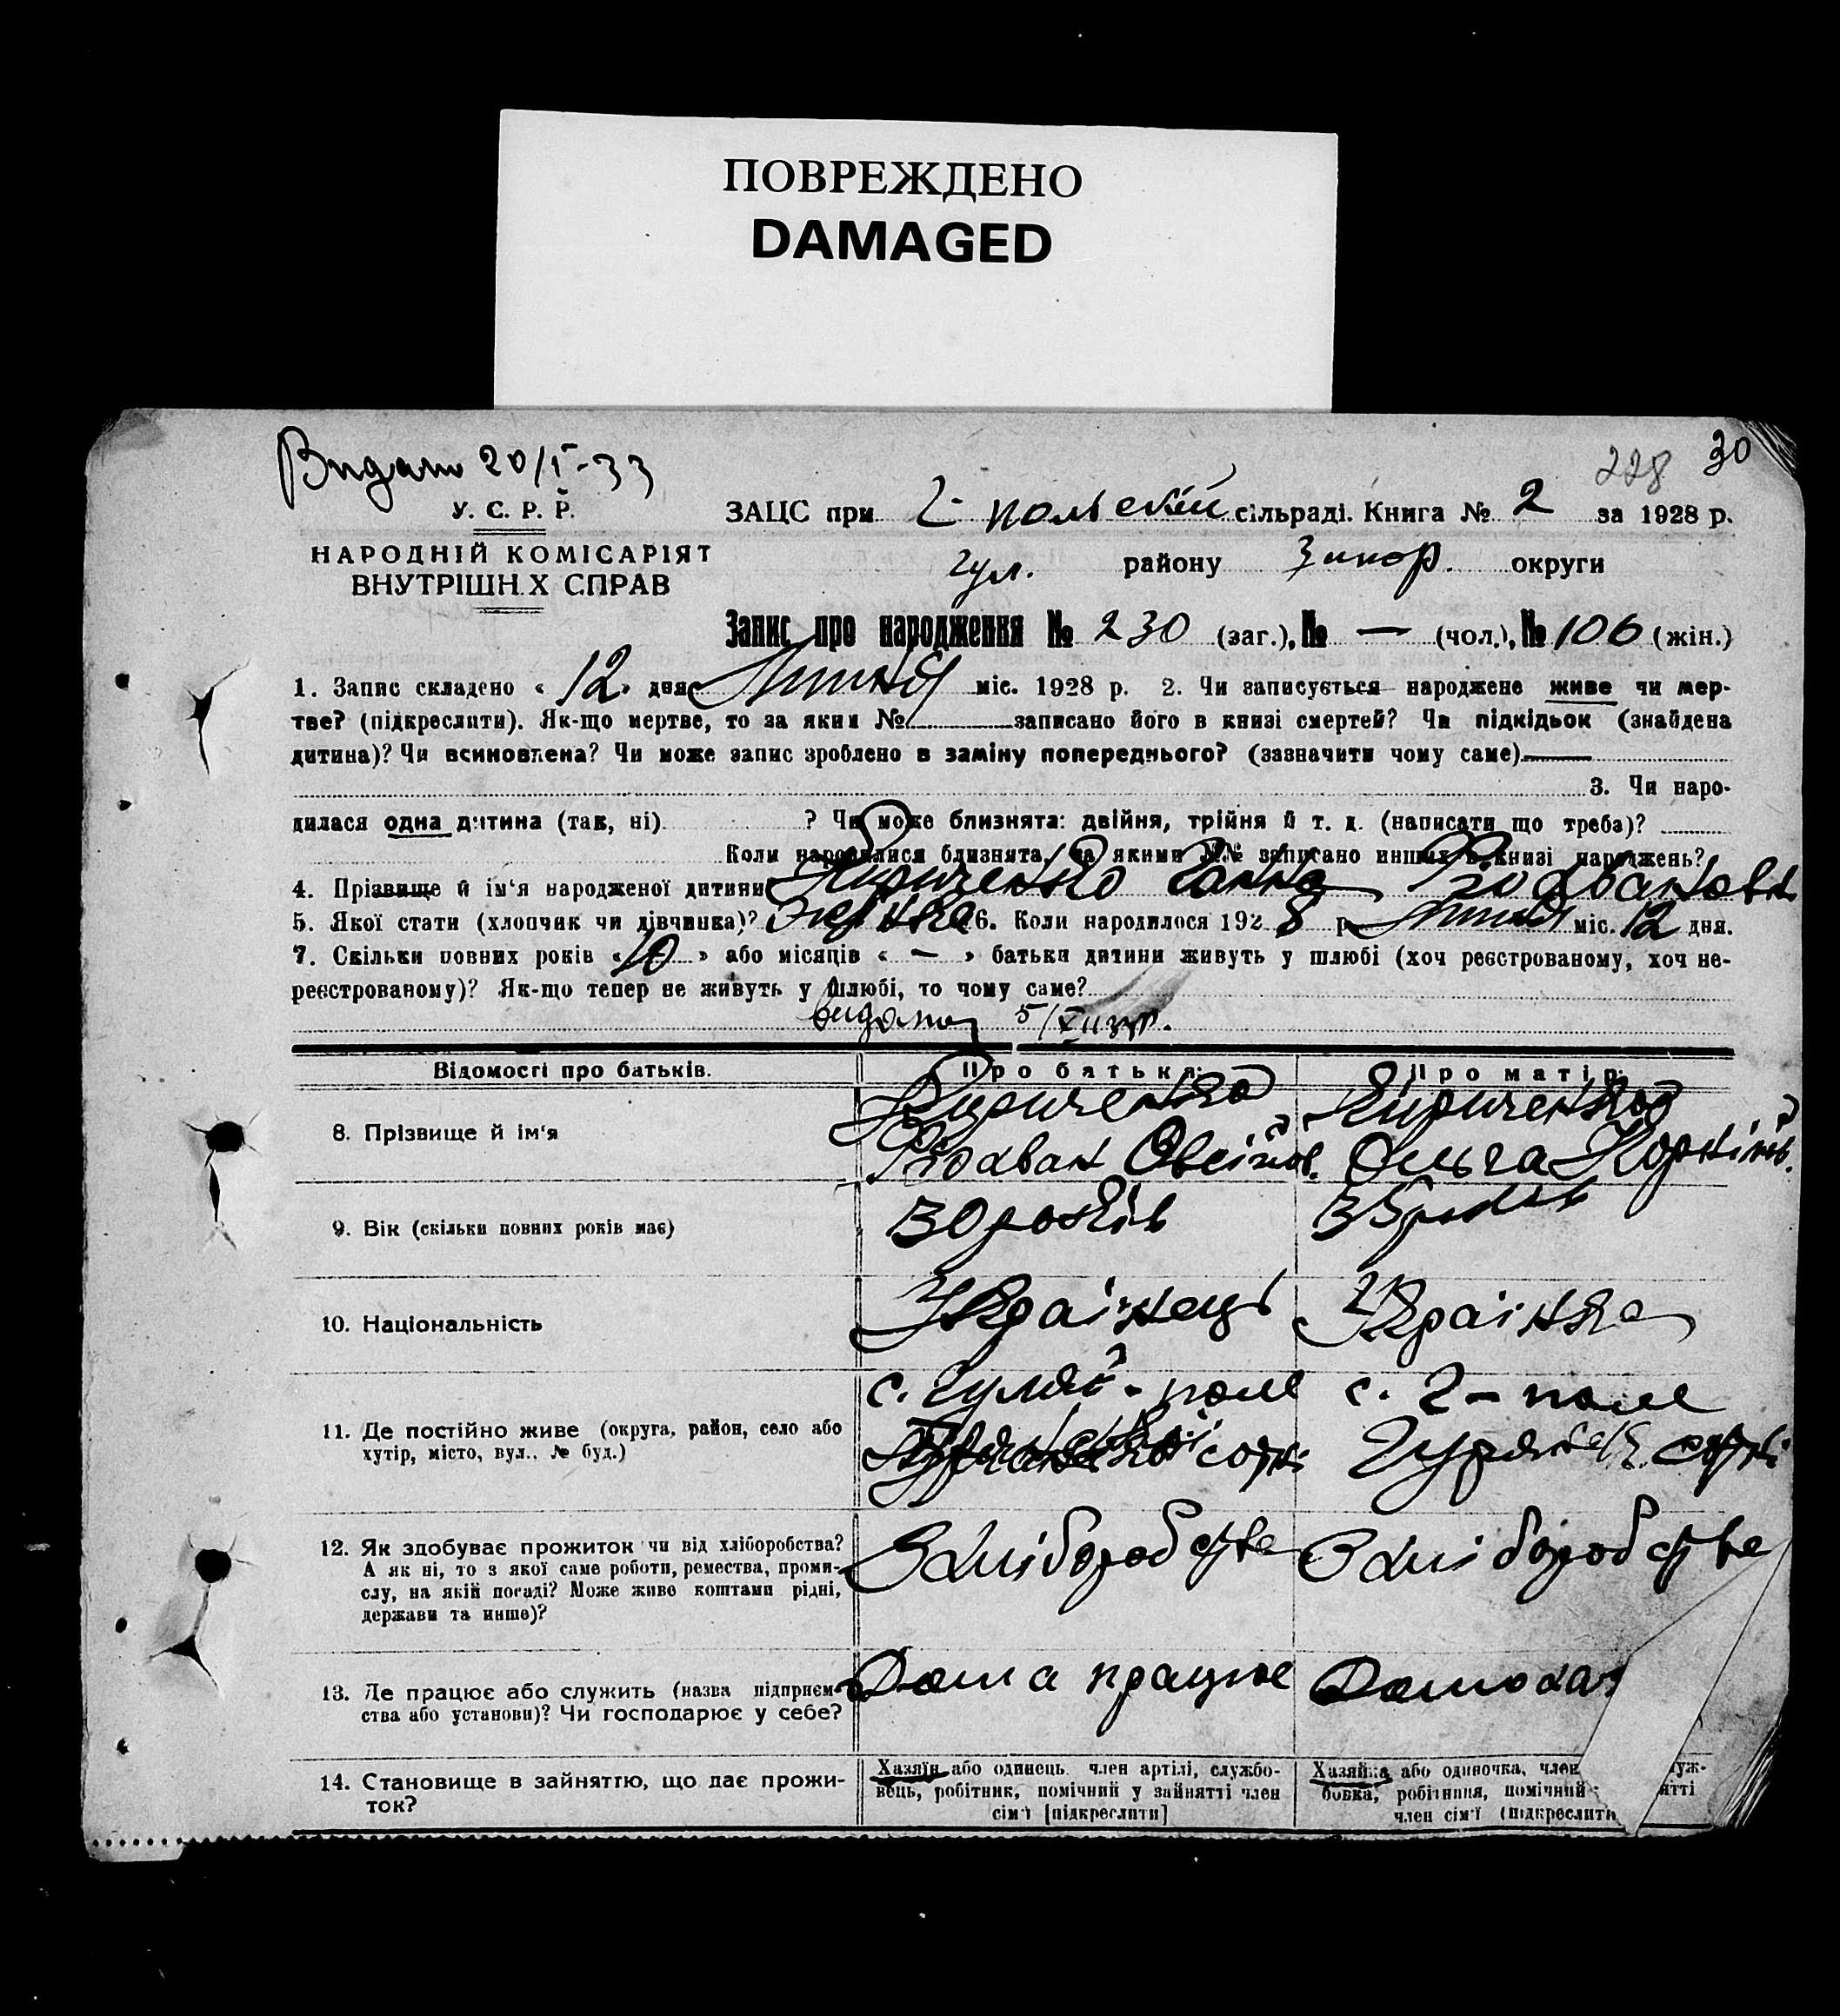 ПОВРЕЖДЕНО
DAMAGED
228 30
Видано 20/I-33
У. С. Р. Р.
НАРОДНІЙ КОМІСАРІЯТ
ВНУТРІШН.Х СПРАВ
ЗАЦС при Г-польскій сільраді. Книга № 2 за 1928 р.
гул. району Запор. округи
Запис про народження № 230 (заг.), № — (чол.), № 106 (жін.)
1. Запис складено « 12 » дня липня міс. 1928 р. 2. Чи записується народжене живе чи мер-
тве? (підкреслити). Як-що мертве, то за яким № записано його в книзі смертей? Чи підкідьок (знайдена
дитина)? Чи всиновлена? Чи може запис зроблено в заміну попереднього? (зазначити чому саме) —
3. Чи наро-
дилася одна дитина (так, ні) ? Чи може близнята: двійня, трійня й т. д. (написати що треба)?
Коли народилися близнята, за якими №№ записано инших в книзі народжень?
4. Прізвище й ім‘я народженої дитини Кириченко Ганна
5. Якої стати (хлопчик чи дівчинка)? 6. Коли народилося 1928 р. липня міс. 12 дня.
7. Скільки повних років « 10 » або місяців « — » батьки дитини живуть у шлюбі (хоч реєстрованому, хоч не-
реєстрованому)? Як-що тепер не живуть у шлюбі, то чому саме?
видана 5/
Відомості про батьків. Про батька: Про матір:
8. Прізвище й ім‘я Кириченко Кириченко
Овсійов. Ольга Корніїв.
9. Вік (скільки повних років має) 30 років 35 років
10. Національність Українець Українка
11. Де постійно живе (округа, район, село або
хутір, місто, вул., № буд.)
с. Гуляй-поле с. Г-поле
сотні сотні
12. Як здобуває прожиток чи від хліборобства?
А як ні, то з якої саме роботи, ремества, проми-
слу, на якій посаді? Може живе коштами рідні,
держави та инше)?
З хліборобства З хліборобства
13. Де працює або служить (назва підприєм-
ства або установи)? Чи господарює у себе?
Дома працює Домохаз
14. Становище в зайняттю, що дає прожи-
ток?
Хазяїн або одинець, член артілі, службо-
вець, робітник, помічний у зайнятті член
сім‘ї [підкреслити]
Хазяйка або одиночка, член служ-
бовка, робітниця, помічний ятті
член сім‘ї (підкреслити